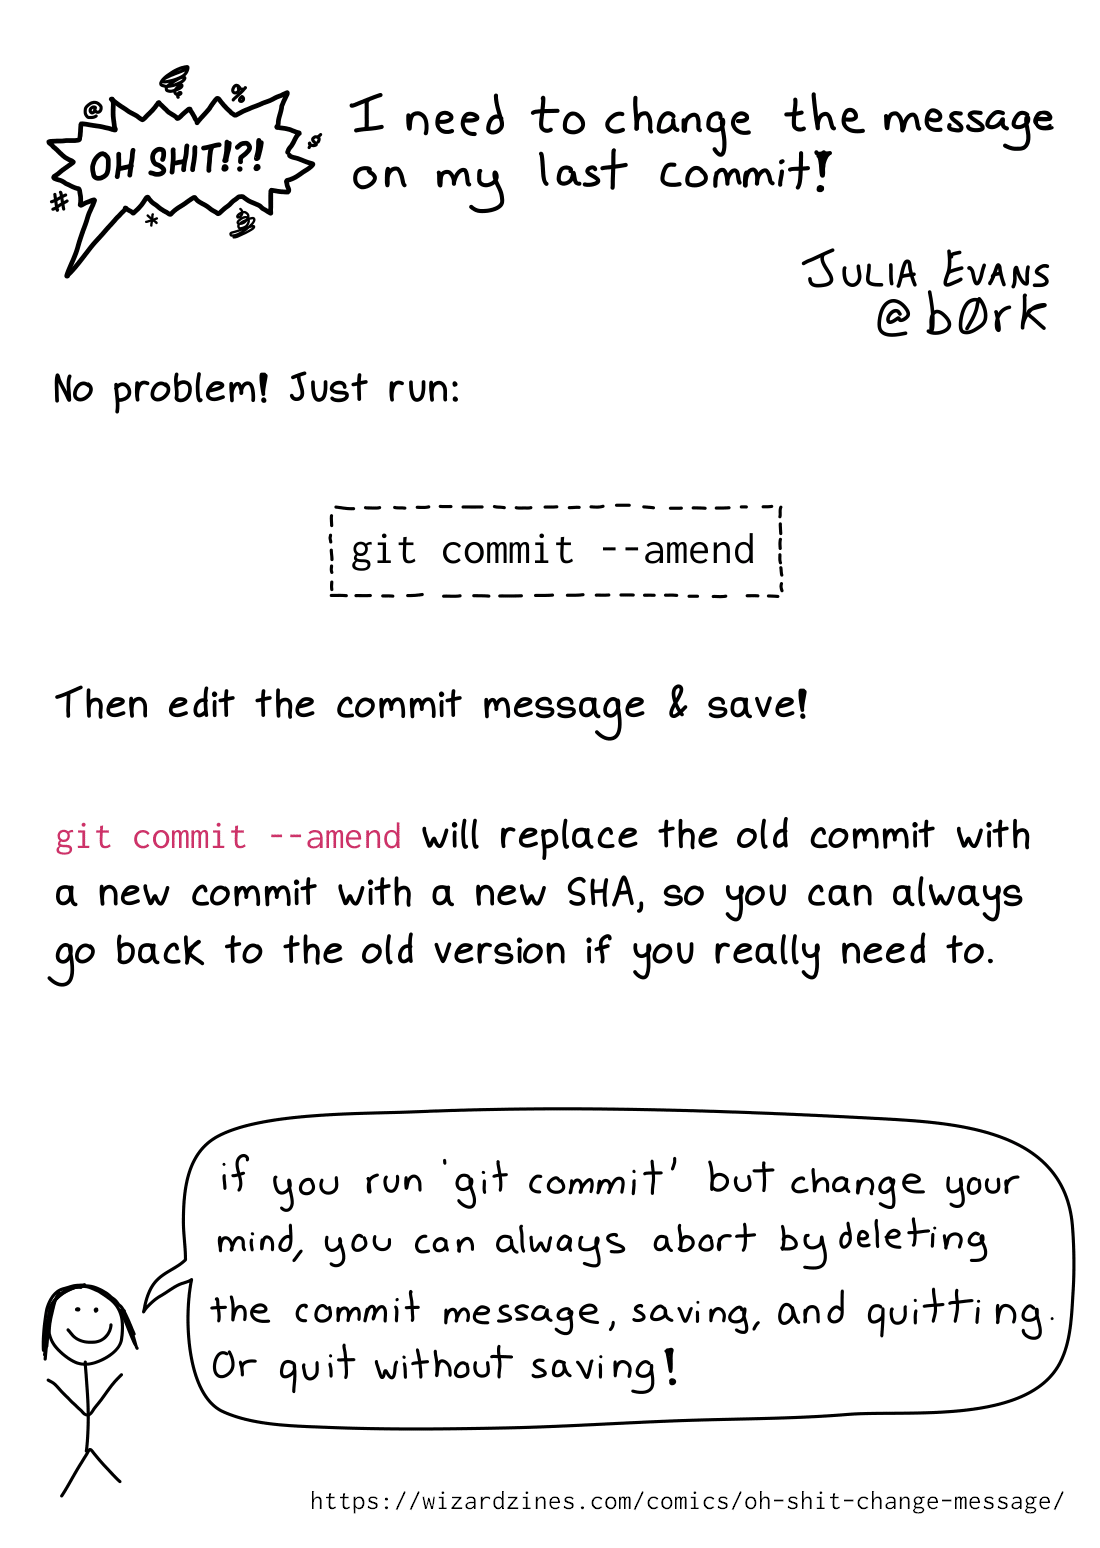 OH SHIT!?!
I need to change the message
on my last commit!
JULIA EVANS
@b0rk
No problem! Just run:
git commit --amend
Then edit the commit message & save!
git commit --amend will replace the old commit with
a new commit with a new SHA, so you can always
go back to the old version if you really need to.
if you run 'git commit' but change your
mind, you can always abort by deleting
the commit message, saving, and quitting.
Or quit without saving!
https://wizardzines.com/comics/oh-shit-change-message/